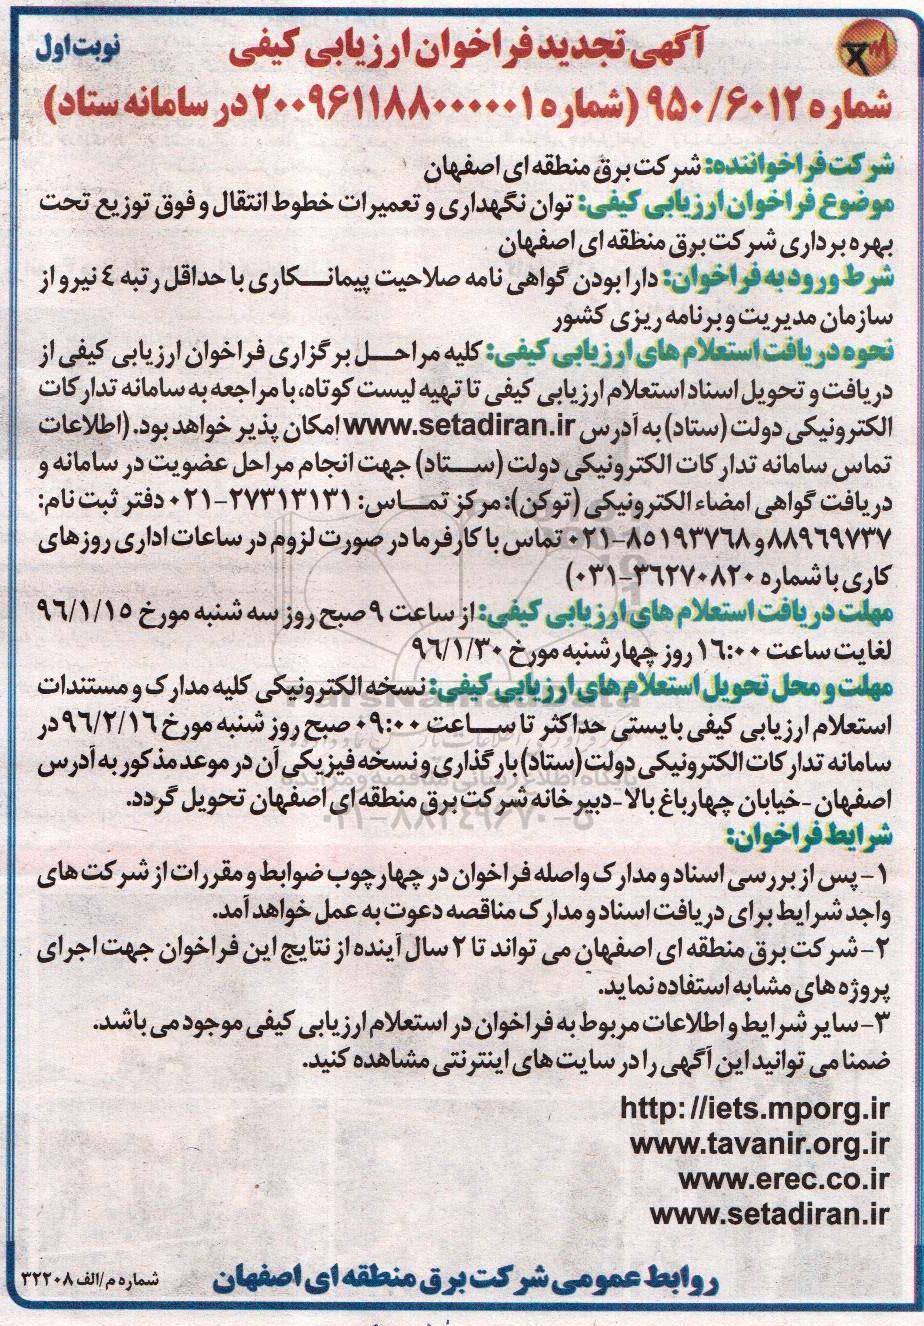 آگهی تجدید فراخوان ارزیابی کیفی
نوبت اول
شماره ۹۵۰/۶۰۱۲ (شماره ۲۰۰۹۶۱۱۸۸۰۰۰۰۰۱ در سامانه ستاد)
شرکت فراخواننده: شرکت برق منطقه ای اصفهان
موضوع فراخوان ارزیابی کیفی: توان نگهداری و تعمیرات خطوط انتقال و فوق توزیع تحت
بهره برداری شرکت برق منطقه ای اصفهان
شرط ورود به فراخوان: دارا بودن گواهی نامه صلاحیت پیمانکاری با حداقل رتبه ٤ نیرو از
سازمان مدیریت و برنامه ریزی کشور
نحوه دریافت استعلام های ارزیابی کیفی: کلیه مراحل برگزاری فراخوان ارزیابی کیفی از
دریافت و تحویل اسناد استعلام ارزیابی کیفی تا تهیه لیست کوتاه، با مراجعه به سامانه تدارکات
الکترونیکی دولت (ستاد) به آدرس www.setadiran.ir امکان پذیر خواهد بود. (اطلاعات
تماس سامانه تدارکات الکترونیکی دولت (ستاد) جهت انجام مراحل عضویت در سامانه و
دریافت گواهی امضاء الکترونیکی (توکن): مرکز تماس: ۲۷۳۱۳۱۳۱-۰۲۱ دفتر ثبت نام:
۸۸۹۶۹۷۳۷ و ۸۵۱۹۳۷۶۸-۰۲۱ تماس با کارفرما در صورت لزوم در ساعات اداری روزهای
کاری با شماره ۳۶۲۷۰۸۲۰-۰۳۱)
مهلت دریافت استعلام های ارزیابی کیفی: از ساعت ۹ صبح روز سه شنبه مورخ ۹۶/۱/۱۵
لغایت ساعت ۱۶:۰۰ روز چهارشنبه مورخ ۹۶/۱/۳۰
مهلت و محل تحویل استعلام های ارزیابی کیفی: نسخه الکترونیکی کلیه مدارک و مستندات
استعلام ارزیابی کیفی بایستی حداکثر تا ساعت ۰۹:۰۰ صبح روز شنبه مورخ ۹۶/۲/۱۶ در
سامانه تدارکات الکترونیکی دولت (ستاد) بارگذاری و نسخه فیزیکی آن در موعد مذکور به آدرس
اصفهان -خیابان چهارباغ بالا -دبیرخانه شرکت برق منطقه ای اصفهان تحویل گردد.
ParsNamaddata
پایگاه اطلاع رسانی مناقصه و مزایده
۰۲۱-۸۸۳۴۹۶۷۰-۵
شرایط فراخوان:
۱- پس از بررسی اسناد و مدارک واصله فراخوان در چهارچوب ضوابط و مقررات از شرکت های
واجد شرایط برای دریافت اسناد و مدارک مناقصه دعوت به عمل خواهد آمد.
۲- شرکت برق منطقه ای اصفهان می تواند تا ۲ سال آینده از نتایج این فراخوان جهت اجرای
پروژه های مشابه استفاده نماید.
۳- سایر شرایط و اطلاعات مربوط به فراخوان در استعلام ارزیابی کیفی موجود می باشد.
ضمنا می توانید این آگهی را در سایت های اینترنتی مشاهده کنید.
http://iets.mporg.ir
www.tavanir.org.ir
www.erec.co.ir
www.setadiran.ir
روابط عمومی شرکت برق منطقه ای اصفهان
شماره م/الف ۳۲۲۰۸